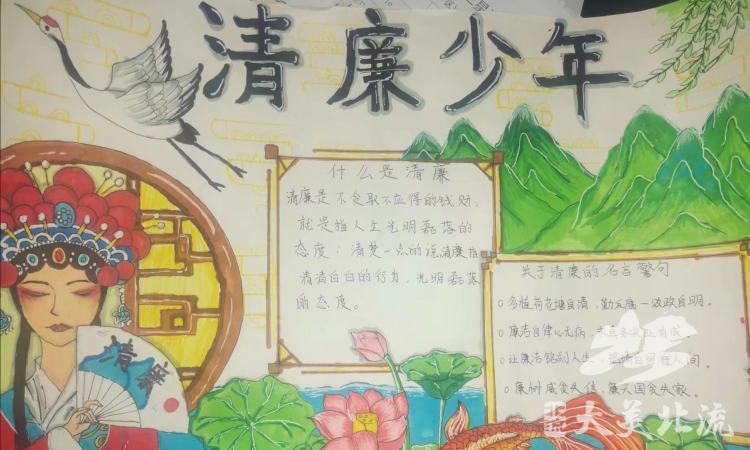 清廉少年
什么是清廉
清廉是不贪取不应得的钱财,
就是指人生光明磊落的
态度;清楚一点的说清廉指
清清白白的行为,光明磊落
的态度。
清廉
关于清廉的名言警句
多植荷花塘自清,勤反腐一政自明。
廉者自律心无病,
让廉洁
廉树
大美北流